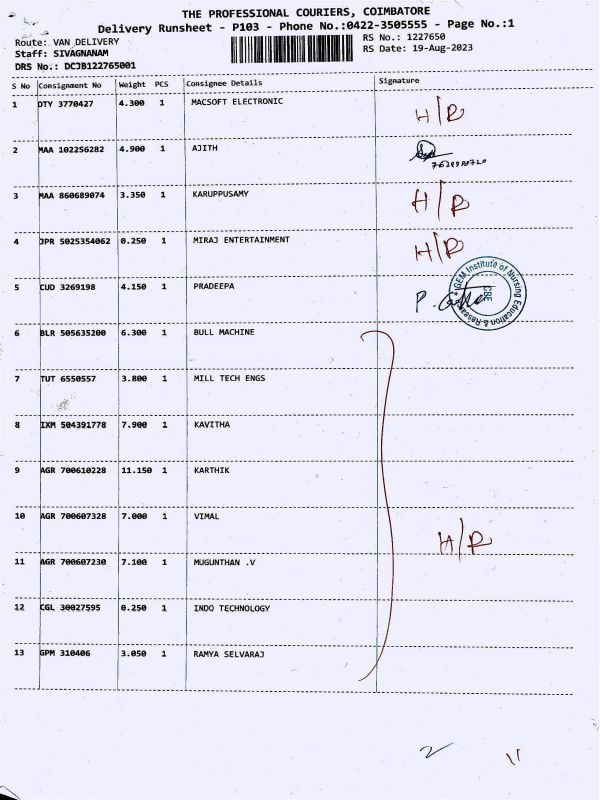 THE PROFESSIONAL COURIERS, COIMBATORE
Delivery Runsheet - P103 - Phone No.:0422-3505555 - Page No.:1
Route: VAN DELIVERY
RS No.: 1227650
Staff: SIVAGNANAM
RS Date: 19-Aug-2023
DRS No.: DCJB122765001
S No Consignment No Weight PCS Consignee Details Signature
1 DTY 3770427 4.300 1 MACSOFT ELECTRONIC H/R
2 MAA 102256282 4.900 1 AJITH
3 MAA 860689074 3.350 1 KARUPPUSAMY H/R
4 JPR 5025354062 0.250 1 MIRAJ ENTERTAINMENT H/R
5 CUD 3269198 4.150 1 PRADEEPA
GEM Institute of Nursing Education & Research
CBE
6 BLR 505635200 6.300 1 BULL MACHINE
7 TUT 6550557 3.800 1 MILL TECH ENGS
8 IXM 504391778 7.900 1 KAVITHA
9 AGR 700610228 11.150 1 KARTHIK
10 AGR 700607328 7.000 1 VIMAL
H/R
11 AGR 700607230 7.100 1 MUGUNTHAN .V
12 CGL 30027595 0.250 1 INDO TECHNOLOGY
13 GPM 310406 3.050 1 RAMYA SELVARAJ
2 11